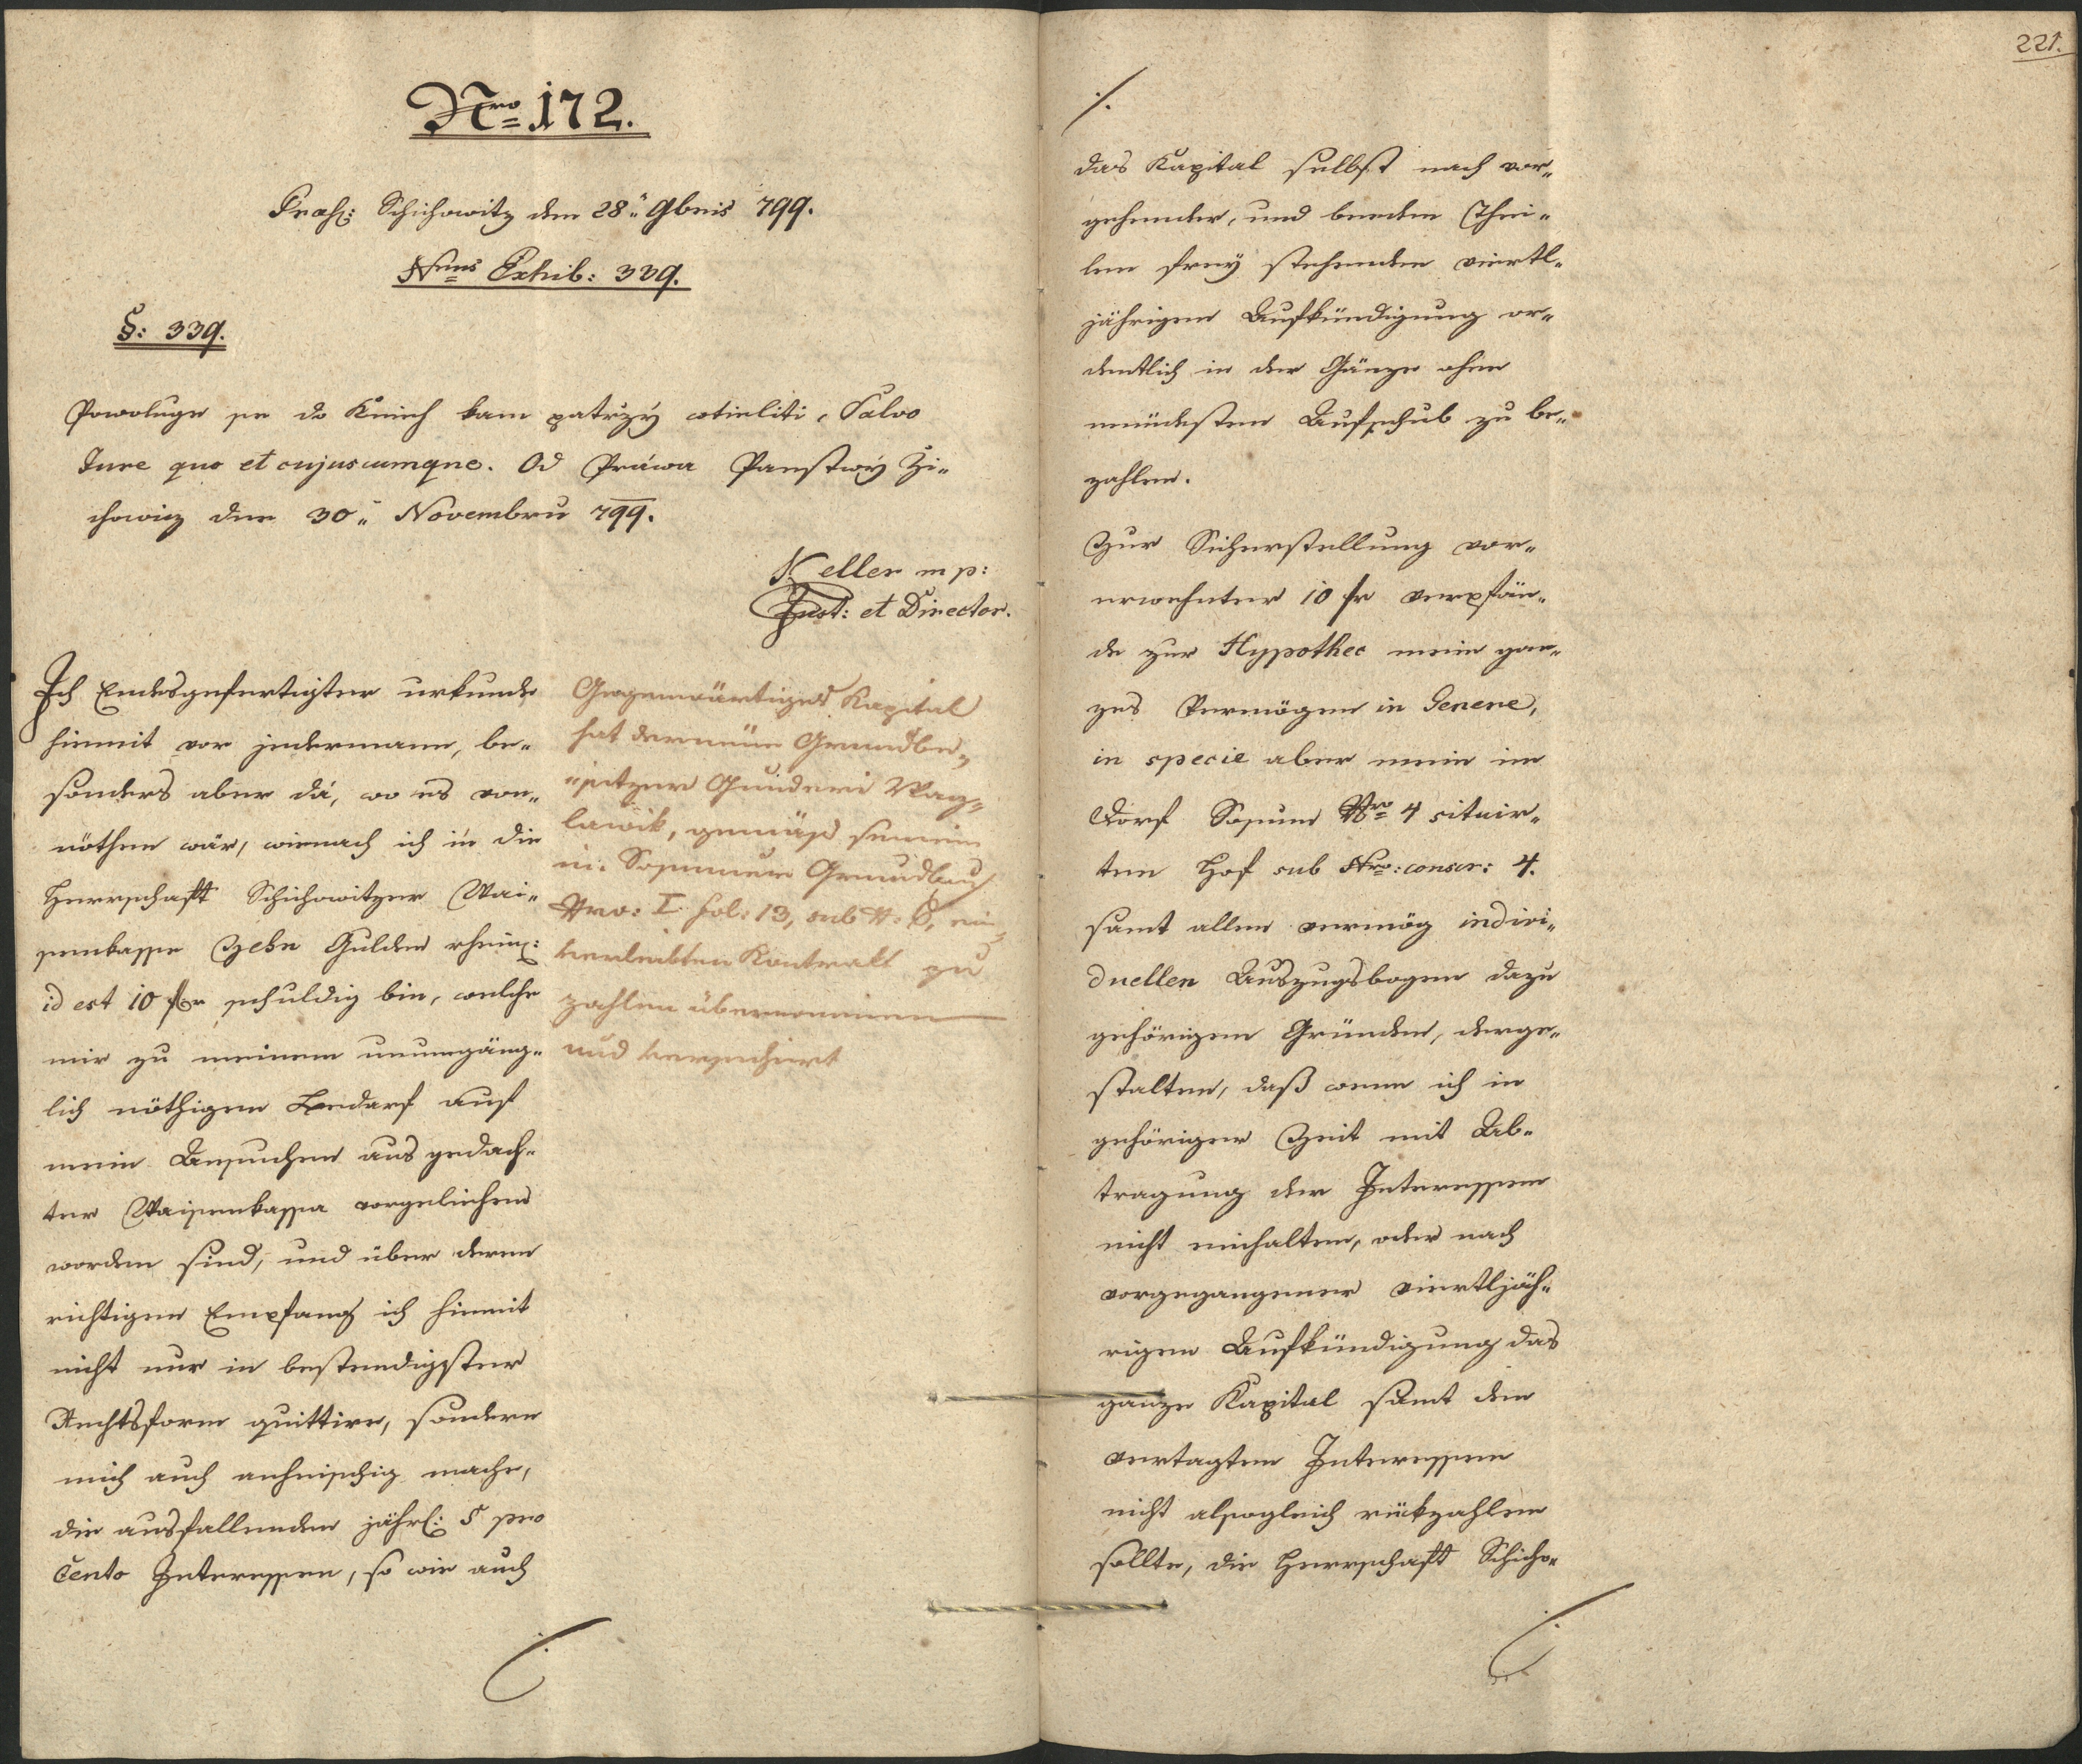 Nro 172.
Praes: Schichowitz den 28n 9bris 799.
Nrus Exhib: 339.
§: 339.
Powoluge se do Knieh kam patrzý wtieliti, Salvo
Jure quo et cujuscumque. Od Práwa Panstwý Zi-
chowicz den 30n Novembru 799.
Keller mp:
Just: et Director.
Ich Endesgefertigter urkunde
hiemit vor jedermann, be-
sonders aber da, wo es von-
nöthen wär, wienach ich in die
Herrschaft Schichowitzer Wai-
senkasse Zehn Gulden rhein:
id est 10 fr schuldig bin, welche
mir zu meinem unumgäng-
lich nöthigen Bedarf auf
mein Ansuchen aus gedach-
ter Waisenkassa vorgeliehen
worden sind, und über deren
richtigen Empfang ich hiemit
nicht nur in bestendigster
Rechtsform quittire, sondern
mich auch anheischig mache,
die ausfallenden jährl: 5 pro
Cento Interessen, so wie auch
Gegenwärtiges Kapital
hat der neue Grundbe-
"sitzer Waz-
lawik, gemäß seinem
in Grundbuch
Nro: I. fol: 13, sub ein-
verleibten Kontrakt zu
zahlen übernommen
und versichert
221.
./.
das Kapital selbst nach vor-
gehender, und beeden Thei-
len freÿ stehenden viertl-
jährigen Aufkündigung or-
dentlich in der Gänze ohne
mindesten Aufschub zu be-
zahlen.
Zur Sicherstellung vor-
erwehnter 10 fr verpfän-
de zur Hypothec mein gan-
zes Vermögen in Genere,
in specie aber mein im
Dorf Nro 4 situir-
ten Hof sub Nro: conscr: 4.
samt allen vermög indivi-
duellen Auszugsbogen dazu
gehörigen Gründen, derge-
stalten, daß wenn ich in
gehöriger Zeit mit Ab-
tragung der Interessen
nicht einhalten, oder nach
vorgegangener viertljäh-
rigen Aufkündigung das
ganze Kapital samt den
vertagten Interessen
nicht alsogleich rükzahlen
sollte, die Herrschaft Schicho-
./.